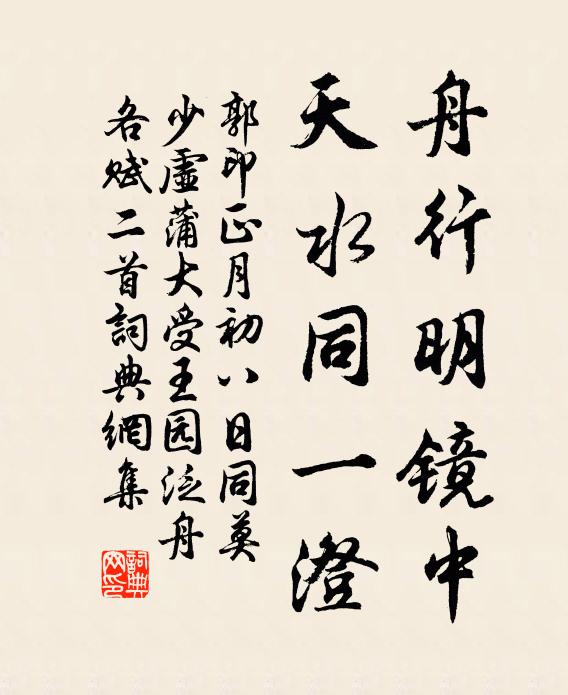 舟行明镜中
天水同一澄
郭印正月初八日同莫
少虚蒲大受王园泛舟
各赋二首詞典網集
詞典网印